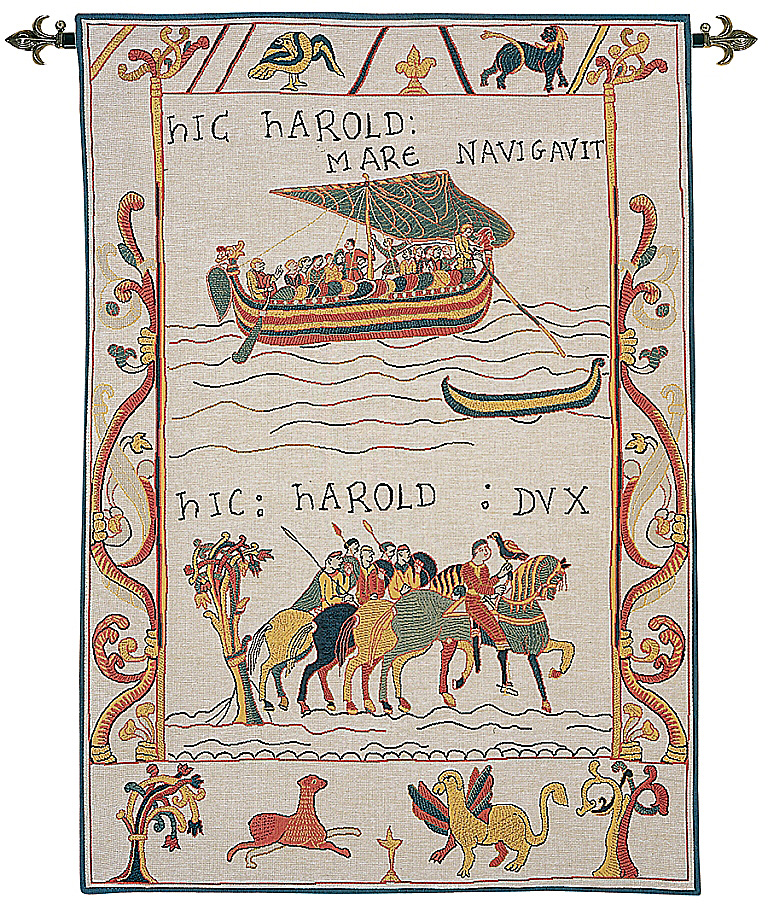 hIC hAROLD:
MARE NAVIGAVIT
hIC: hAROLD : DVX